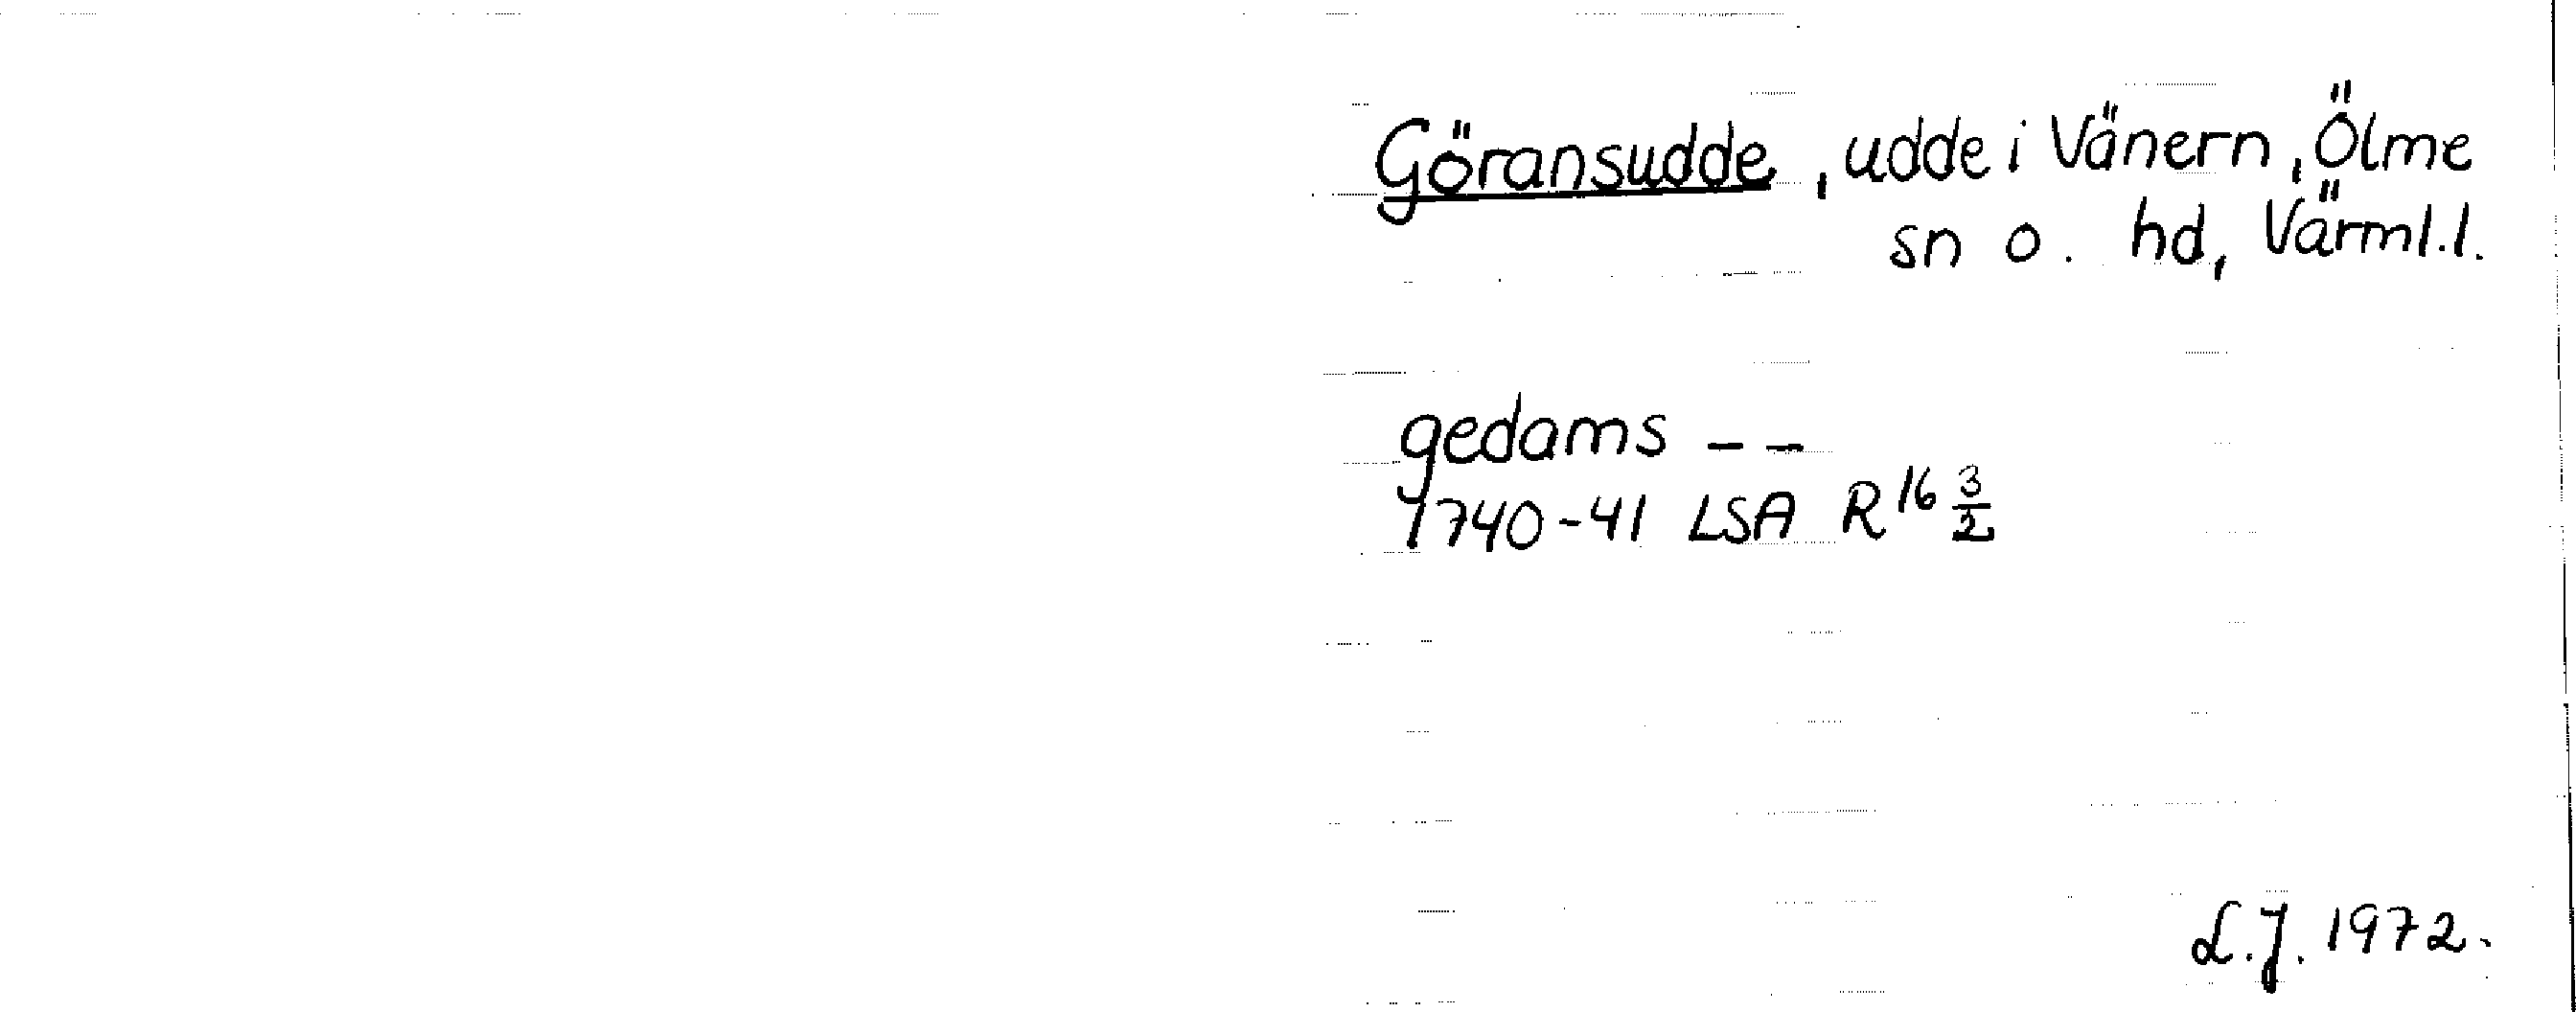 Göransudde, udde i Vänern, Ölme
sn o. hd, Värml.l.
gedams --
1740-41 LSA R16 3/2
L.J. 1972.